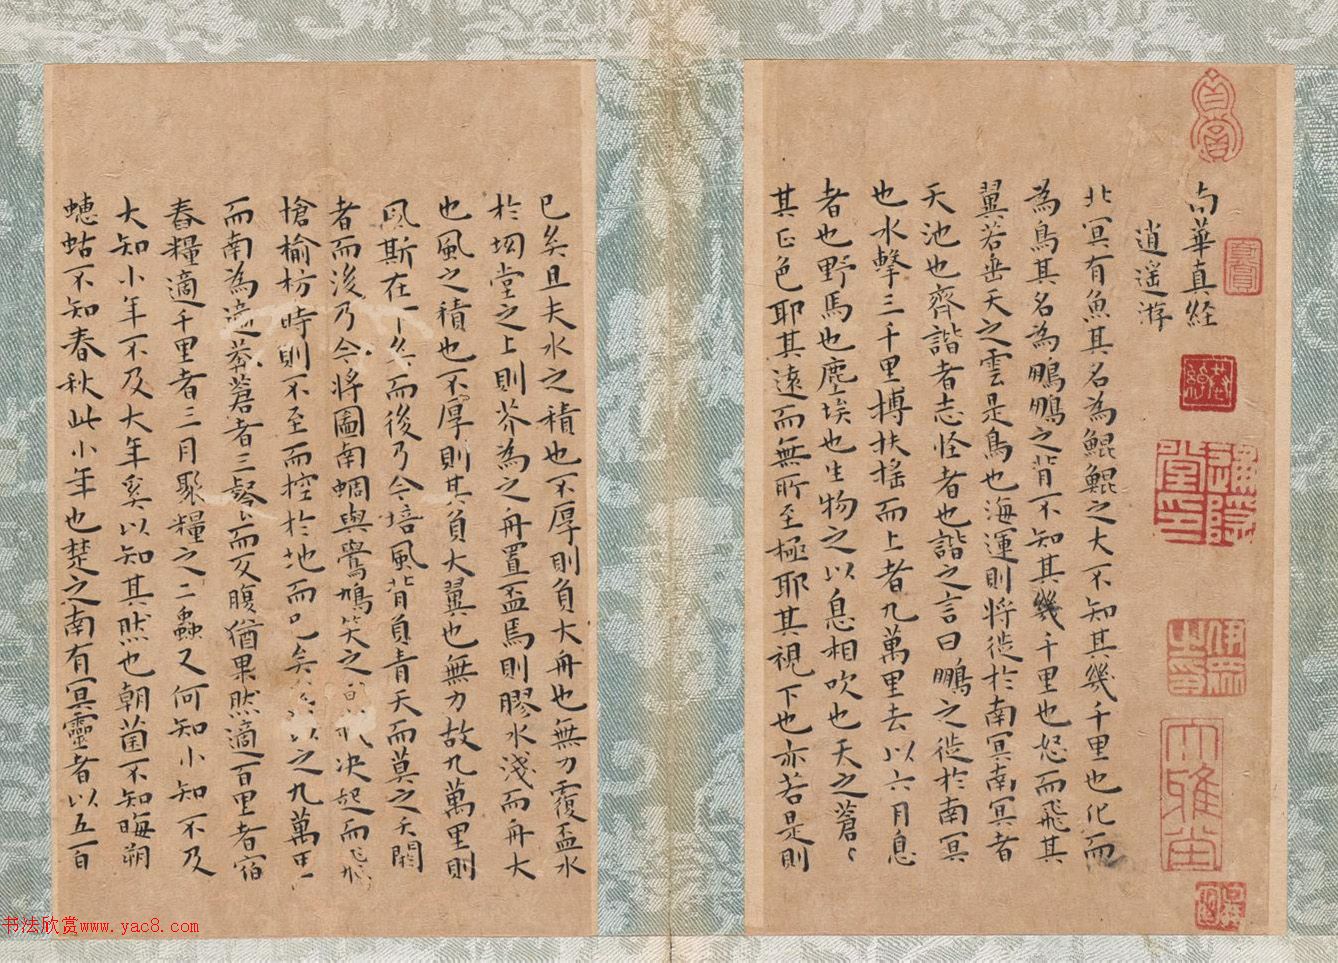 南華真經
逍遙游
北冥有魚其名為鯤鯤之大不知其幾千里也化而
為鳥其名為鵬鵬之背不知其幾千里也怒而飛其
翼若垂天之雲是鳥也海運則將徙於南冥南冥者
天池也齊諧者志怪者也諧之言曰鵬之徙於南冥
也水擊三千里搏扶搖而上者九萬里去以六月息
者也野馬也塵埃也生物之以息相吹也天之蒼〻
其正色耶其遠而無所至極耶其視下也亦若是則
已矣且夫水之積也不厚則負大舟也無力覆盃水
於坳堂之上則芥為之舟置盃焉則膠水淺而舟大
也風之積也不厚則其負大翼也無力故九萬里則
風斯在下矣而後乃今培風背負青天而莫之夭閼
者而後乃今將圖南蜩與鷽鳩笑之我决起而飛
搶榆枋時則不至而控於地而已矣以之九萬里
而南為適莽蒼者三飡而反腹猶果然適百里者宿
舂糧適千里者三月聚糧之二蟲又何知小知不及
大知小年不及大年奚以知其然也朝菌不知晦朔
蟪蛄不知春秋此小年也楚之南有冥靈者以五百
书法欣赏www.yac8.com